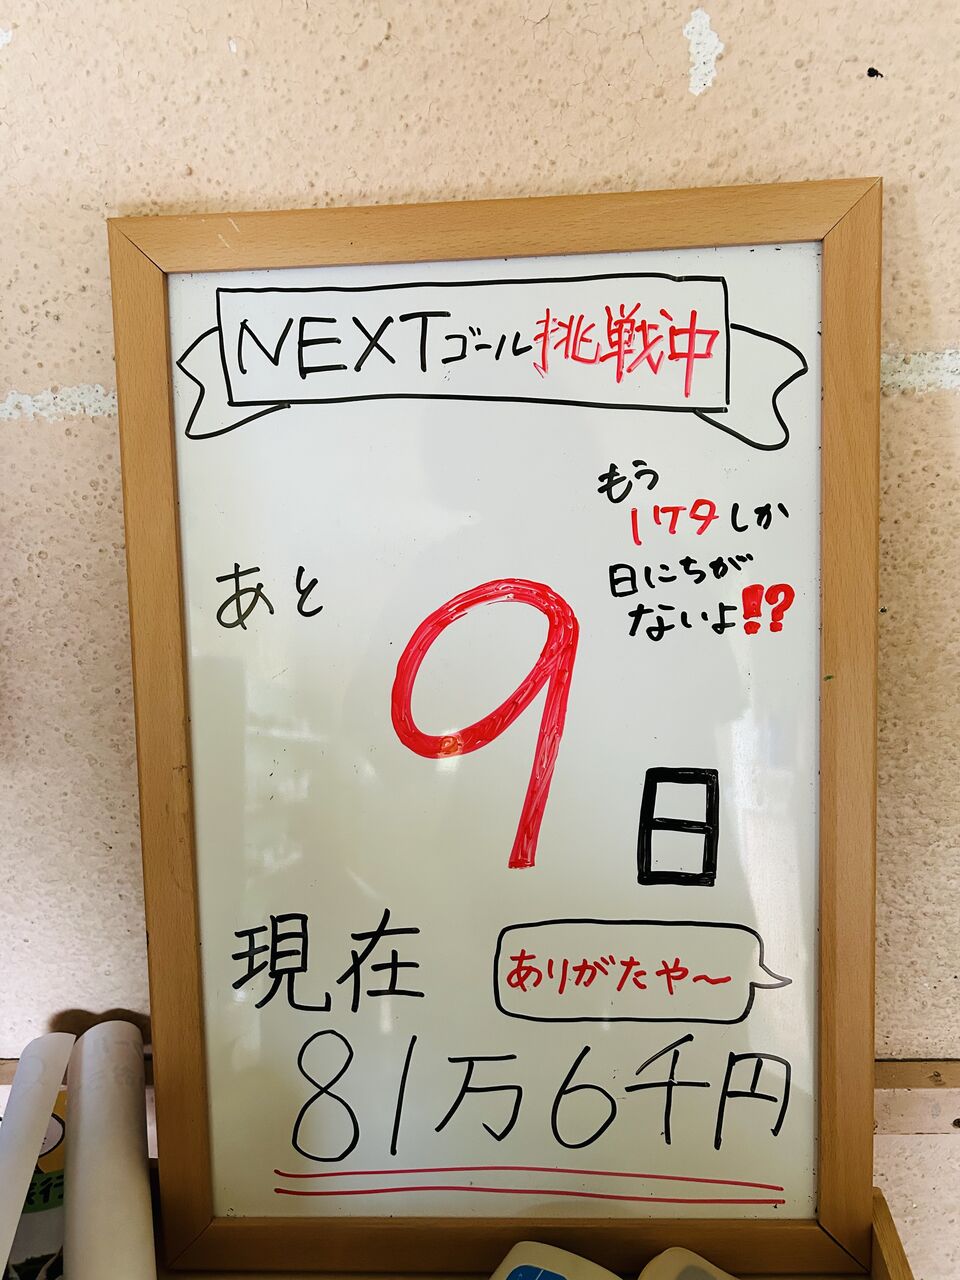 NEXTゴール挑戦中
もう
1ケタしか
日にちが
ないよ!?
あと
9
日
現在
ありがたや〜
81万6千円